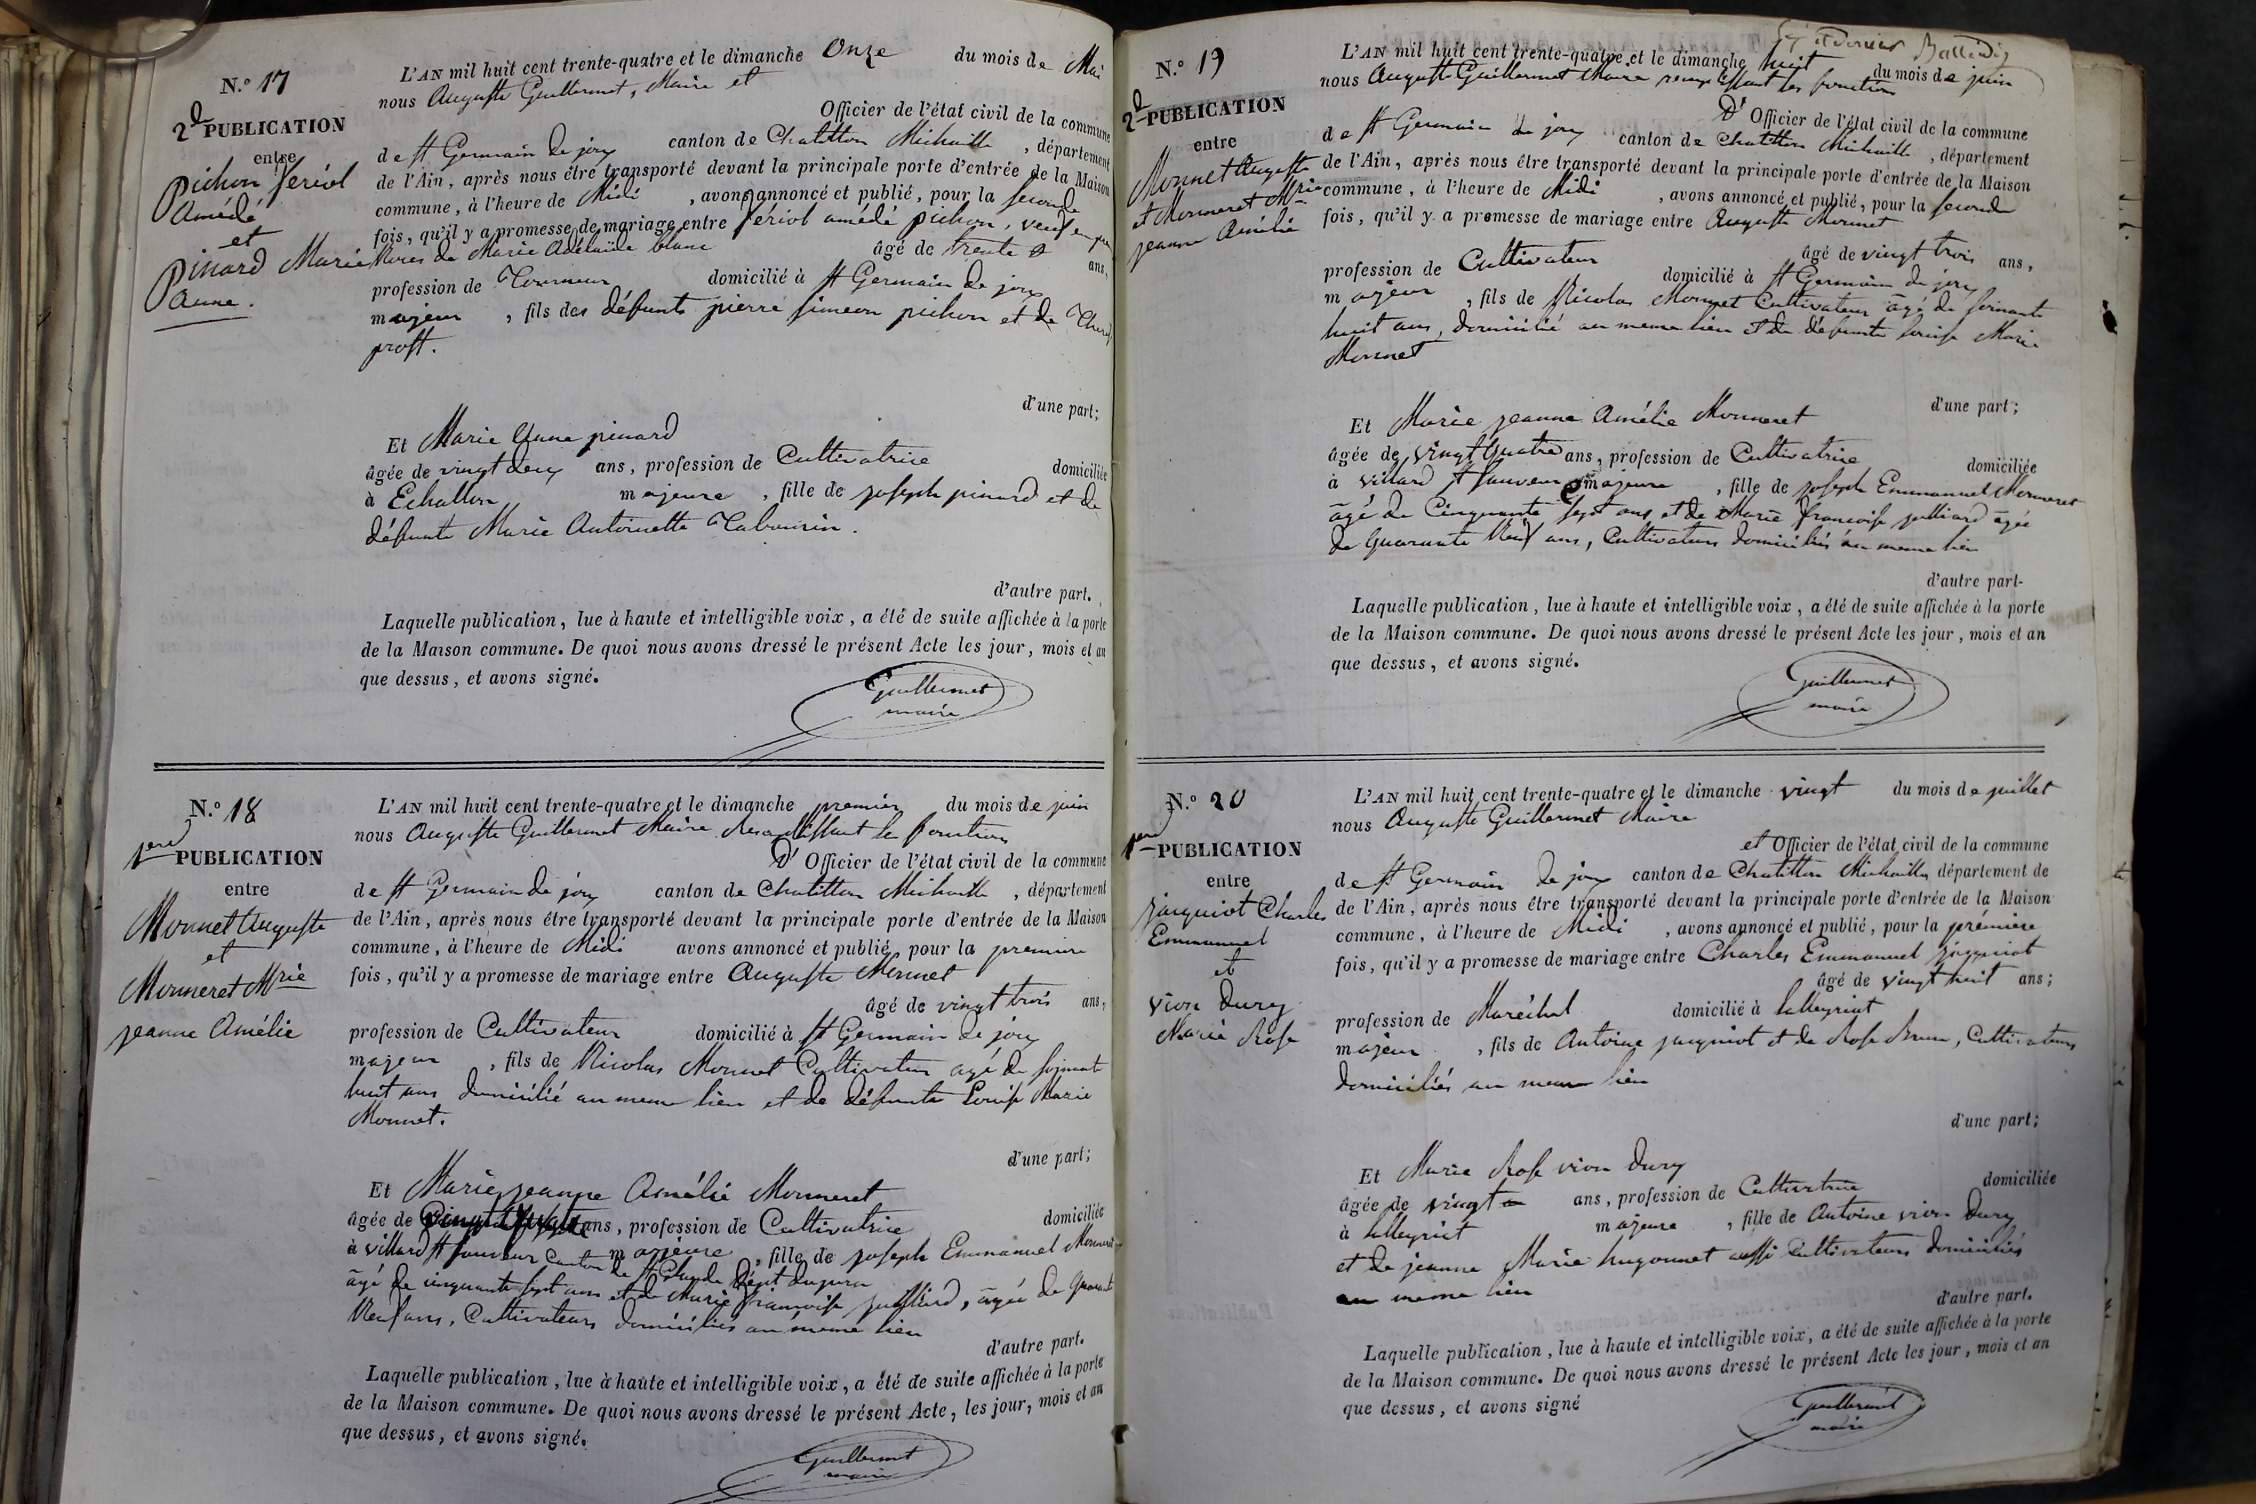 N.º 17
2d PUBLICATION
entre
Pichon feréol
Amédé
et
Pinard Marie
Anne.
L'AN mil huit cent trente-quatre et le dimanche Onze du mois de Mai
nous Auguste Guillermet, Maire et
Officier de l'état civil de la commune
de St Germain de joux canton de Chatillon Michaille, département
de l'Ain, après nous être transporté devant la principale porte d'entrée de la Maison
commune, à l'heure de Midi, avons annoncé et publié, pour la seconde
fois, qu'il y a promesse de mariage entre féréol amédé pichon, veuf en
Noces de Marie Adélaïde blanc âgé de trente ans,
profession de Tourneur domicilié à St Germain de joux
majeur, fils des défunts pierre simeon pichon et de
prost.
d'une part;
Et Marie Anne pinard
âgée de vingt deux ans, profession de Cultivatrice domiciliée
à Echallon majeure, fille de joseph pinard et de
défunte Marie Antoinette Tabourin.
d'autre part.
Laquelle publication, lue à haute et intelligible voix, a été de suite affichée à la porte
de la Maison commune. De quoi nous avons dressé le présent Acte les jour, mois et an
que dessus, et avons signé.
Guillermet
maire
N.º 18
1ere PUBLICATION
entre
Monnet Auguste
et
Monneret Mrie
jeanne Amélie
L'AN mil huit cent trente-quatre et le dimanche premier du mois de juin
nous Auguste Guillermet Maire Remplissant les fonctions
D' Officier de l'état civil de la commune
de St Germain de joux canton de Chatillon Michaille, département
de l'Ain, après nous être transporté devant la principale porte d'entrée de la Maison
commune, à l'heure de Midi avons annoncé et publié, pour la premiere
fois, qu'il y a promesse de mariage entre Auguste Monnet
âgé de vingt trois ans,
profession de Cultivateur domicilié à St Germain de joux
majeur, fils de Nicolas Monnet Cultivateur agé de soixante
huit ans domicilié au meme lieu et de défunte Louise Marie
Monnet.
d'une part;
Et Marie jeanne Amélie Monneret
âgée de ans, profession de Cultivatrice domiciliée
à villard St sauveur canton de St Claude Dépt du jura majeure, fille de joseph Emmanuel Monneret
âgé de cinquante sept ans et de Marie françoise juilliard, âgée de quarante
Neuf ans, Cultivateurs domiciliés au meme lieu
d'autre part.
Laquelle publication, lue à haute et intelligible voix, a été de suite affichée à la porte
de la Maison commune. De quoi nous avons dressé le présent Acte, les jour, mois et an
que dessus, et avons signé.
Guillermet
maire
et dernier
N.º 19
2d PUBLICATION
entre
Monnet Auguste
et Monneret Mrie
jeanne Amélie
L'AN mil huit cent trente-quatre et le dimanche huit du mois de juin
nous Auguste Guillermet Maire remplissant les fonctions
D' Officier de l'état civil de la commune
de St Germain de joux canton de Chatillon Michaille, département
de l'Ain, après nous être transporté devant la principale porte d'entrée de la Maison
commune, à l'heure de Midi, avons annoncé et publié, pour la seconde
fois, qu'il y a promesse de mariage entre Auguste Monnet
âgé de vingt trois ans,
profession de Cultivateur domicilié à St Germain de joux
majeur, fils de Nicolas Monnet Cultivateur âgé de soixante
huit ans, domicilié au meme lieu et de défunte louise Marie
Monnet
d'une part;
Et Marie jeanne Amélie Monneret
âgée de vingt quatre ans, profession de Cultivatrice domiciliée
à villard St sauveur majeure, fille de joseph Emmanuel Monneret
âgé de Cinquante sept ans et de Marie françoise juilliard âgée
de quarante Neuf ans, Cultivateurs domiciliés au meme lieu
d'autre part-
Laquelle publication, lue à haute et intelligible voix, a été de suite affichée à la porte
de la Maison commune. De quoi nous avons dressé le présent Acte les jour, mois et an
que dessus, et avons signé.
Guillermet
maire
N.º 20
1ere PUBLICATION
entre
jacquiot Charles
Emmanuel
et
vion Dury
Marie Rose
L'AN mil huit cent trente-quatre et le dimanche vingt du mois de juillet
nous Auguste Guillermet Maire
et Officier de l'état civil de la commune
de St Germain de joux canton de Chatillon Michaille département de
de l'Ain, après nous être transporté devant la principale porte d'entrée de la Maison
commune, à l'heure de Midi, avons annoncé et publié, pour la première
fois, qu'il y a promesse de mariage entre Charles Emmanuel jacquiot
âgé de vingt huit ans;
profession de Maréchal domicilié à lalleyriat
majeur, fils de Antoine jacquiot et de Rose Brun, Cultivateurs
domiciliés au meme lieu
d'une part;
Et Marie Rose vion Dury
âgée de vingt ans, profession de Cultivatrice domiciliée
à lalleyriat majeure, fille de Antoine vion Dury
et de jeanne Marie hugonnet aussi Cultivateurs domiciliés
au meme lieu
d'autre part.
Laquelle publication, lue à haute et intelligible voix, a été de suite affichée à la porte
de la Maison commune. De quoi nous avons dressé le présent Acte les jour, mois et an
que dessus, et avons signé
Guillermet
maire